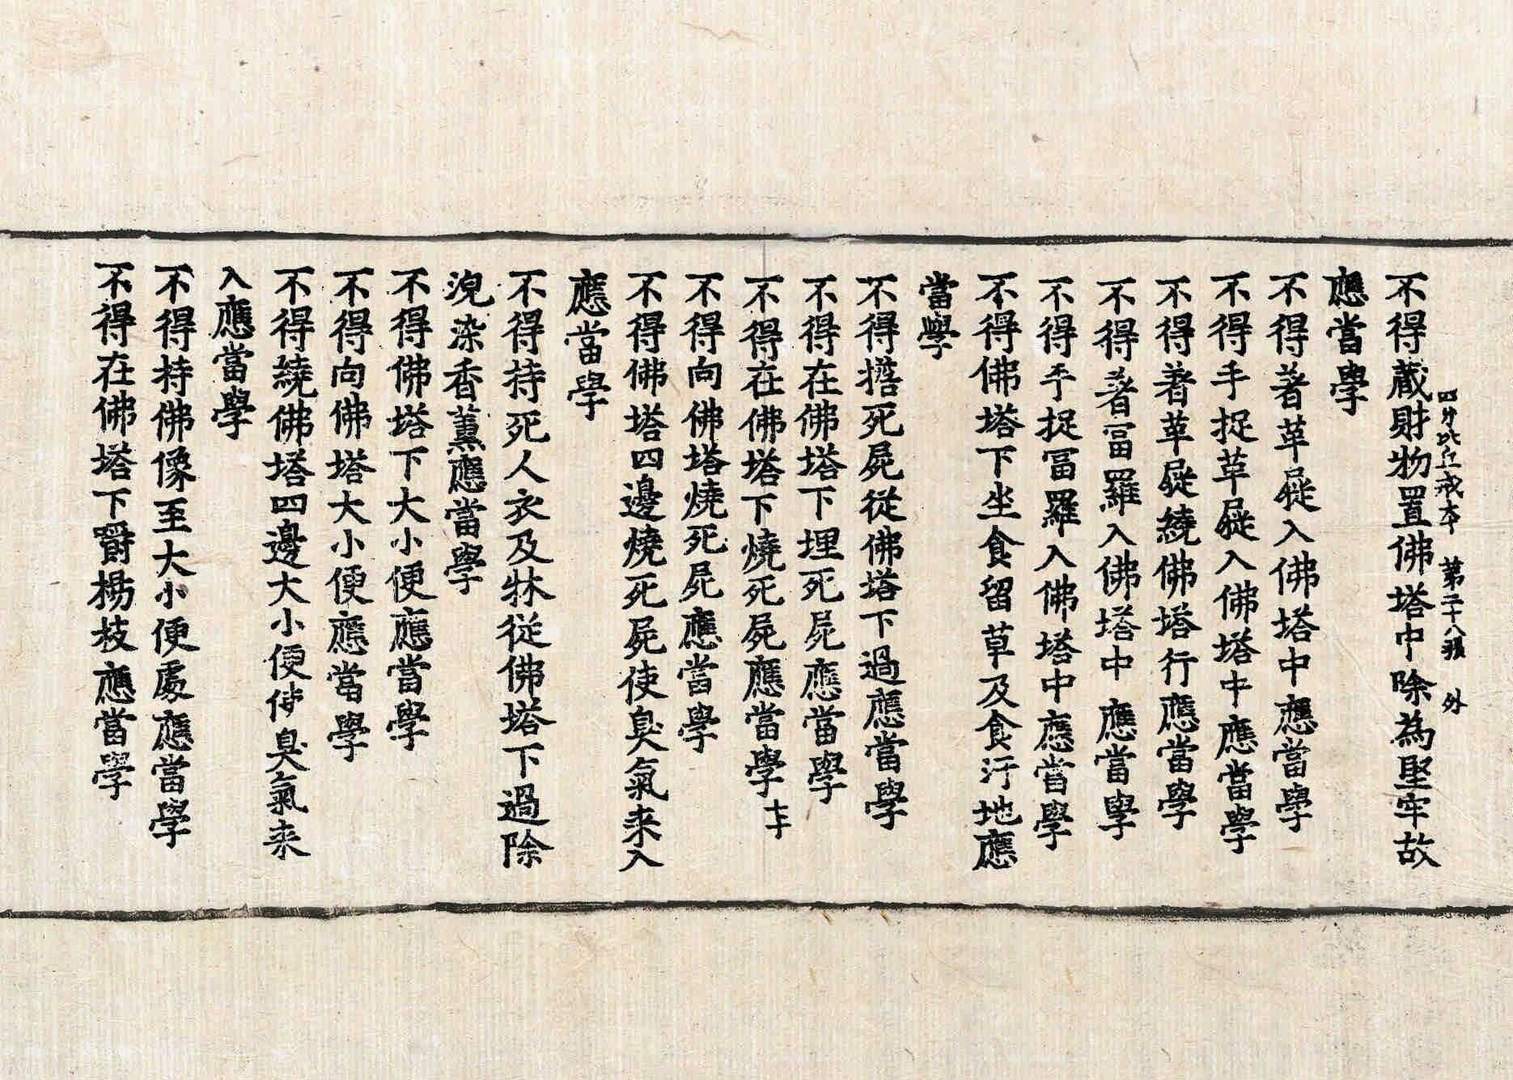 不得蔵財物置佛塔中除為堅牢故
四分比丘戒本 第二十八張 外
應當學
不得著革屣入佛塔中應當學
不得手捉革屣入佛塔中應當學
不得著革屣繞佛塔行應當學
不得著冨羅入佛塔中應當學
不得手捉冨羅入佛塔中應當學
不得佛塔下坐食留草及食汙地應
當學
不得擔死屍從佛塔下過應當學
不得在佛塔下埋死屍應當學
不得在佛塔下燒死屍應當學
不得向佛塔燒死屍應當學
不得佛塔四邊燒死屍使臭氣来入
應當學
不得持死人衣及牀從佛塔下過除
浣染香薰應當學
不得佛塔下大小便應當學
不得向佛塔大小便應當學
不得繞佛塔四邊大小便使臭氣来
入應當學
不得持佛像至大小便處應當學
不得在佛塔下嚼楊枝應當學